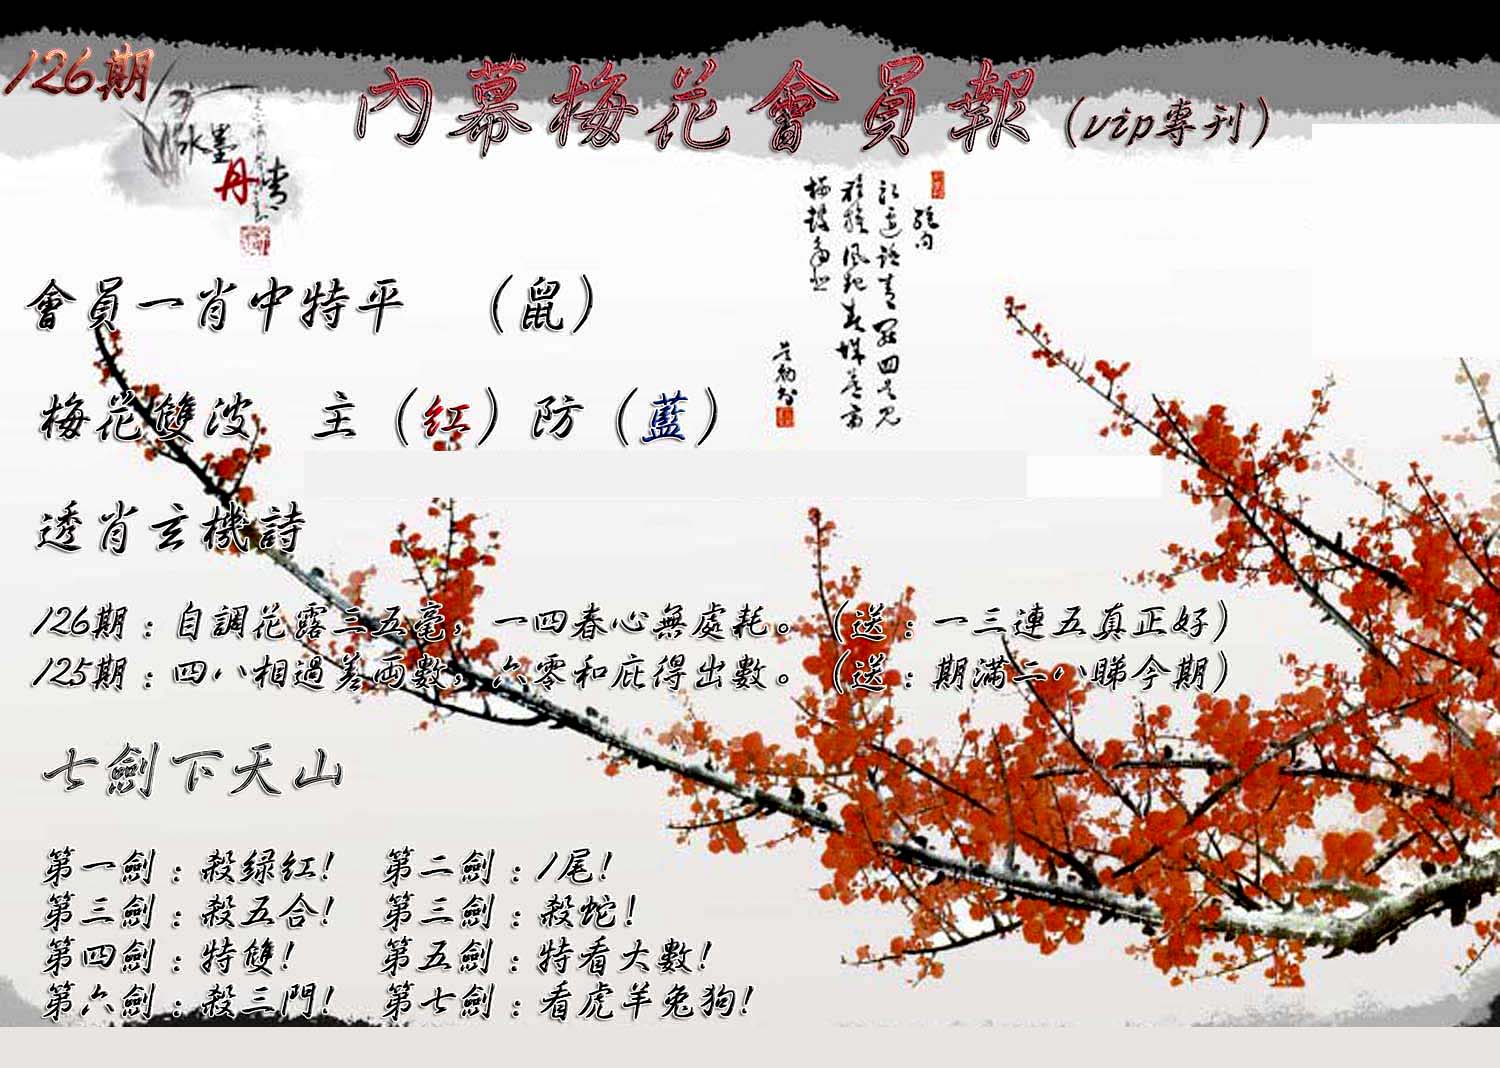 126期
內幕梅花會員報（vip專刊）
水墨
丹青
會員一肖中特平　（鼠）
梅花雙波　主（红）防（藍）
透肖玄機詩
126期：自調花露三五毫，一四春心無處耗。（送：一三連五真正好）
125期：四八相過差両數，六零和庇得出數。（送：期滿二八睇今期）
七劍下天山
第一劍：殺绿红！　第二劍：1尾！
第三劍：殺五合！　第三劍：殺蛇！
第四劍：特雙！　第五劍：特看大數！
第六劍：殺三門！　第七劍：看虎羊兔狗！